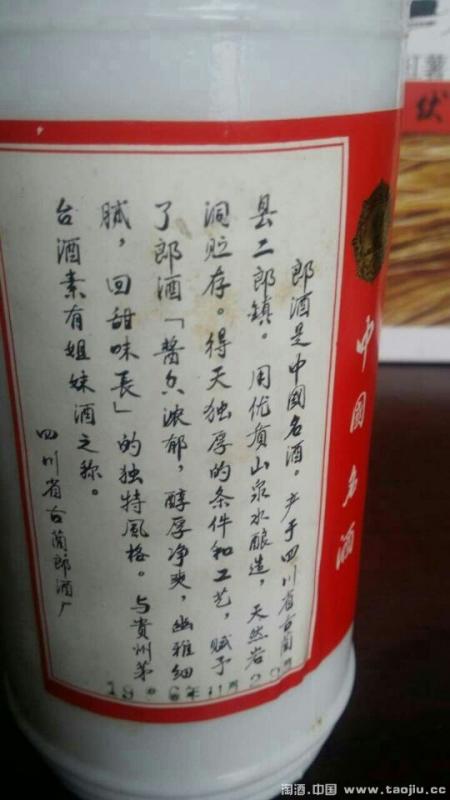 中國名酒
郎酒是中國名酒。产于四川省古蔺
县二郎鎮。用优质山泉水酿造，天然岩
洞贮存。得天独厚的条件和工艺，赋予
了郎酒「醬香浓郁，醇厚净爽，幽雅细
腻，回甜味长」的独特風格。与貴州茅
台酒素有姐妹酒之称。
四川省古蔺郎酒厂
年11月
薯
淘酒.中国 www.taojiu.cc